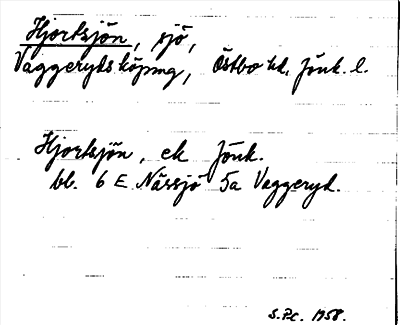 Hjortsjön, sjö,
Vaggeryds köping, Östbo hd. Jönk. l.
Hjortsjön, ek Jönk.
bl. 6 E Nässjö 5a Vaggeryd.
S.P.C. 1958.